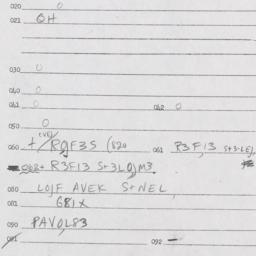 020 0
021 OH
030 0
040 0
041 0 042 0
050 0
060 + / R9F3S (820 061 R3F,13 S+3-LEJ,
068+ R3F13 S+3LOJM3
080 LOJF AVEK S+NEL
081 G81X
090 PAVOL83
091 092 -